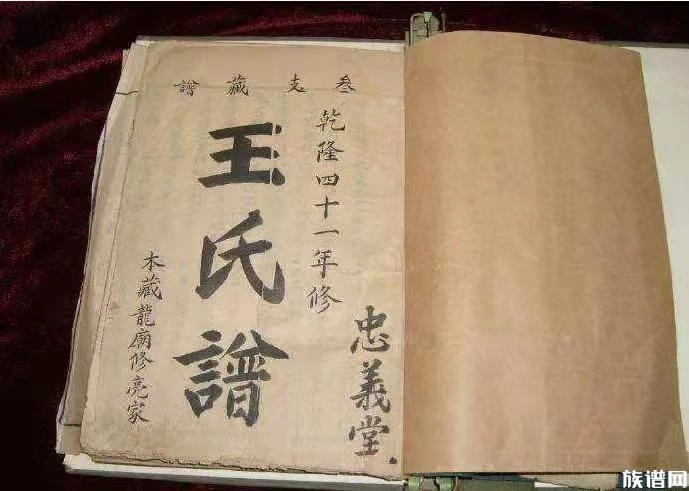 叁支藏譜
乾隆四十一年修
忠義堂
王氏譜
木藏龍廟修亮家
族谱网